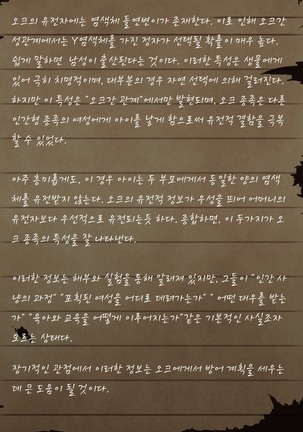 오크의 유전자에는 염색체 돌연변이가 존재한다. 이로 인해 오크간
성관계에서는 Y염색체를 가진 정자가 선택될 확률이 매우 높다.
쉽게 말하면 남성이 출산된다는 것이다. 이러한 특성은 생물에게
있어 극히 치명적이며, 대부분의 경우 자연 선택에 의해 걸러진다.
하지만 이 특성은 "오크간 관계"에서만 발현되며, 오크 종족은 다른
인간형 종족의 여성에게 아이를 낳게 함으로써 유전적 결함을 극복
할 수 있었다.
아주 흥미롭게도, 이 경우 아이는 두 부모에게서 동일한 양의 염색
체를 유전받지 않는다. 오크의 유전적 정보가 우성을 띄어 어머니의
유전자보다 우선적으로 유전되는듯 하다. 종합하면, 이 두가지가 오
크 종족의 특성을 잘 나타낸다.
이러한 정보는 해부와 실험을 통해 알려져 있지만, 그들이 "인간 사
냥의 과정" "포획된 여성을 어디로 데려가는가" "어떤 대우를 받는
가" "육아와 교육을 어떻게 이루어지는가"같은 기본적인 사실조자
모르는 상태다.
장기적인 관점에서 이러한 정보는 오크에게서 방어 계획을 세우는
데 큰 도움이 될 것이다.